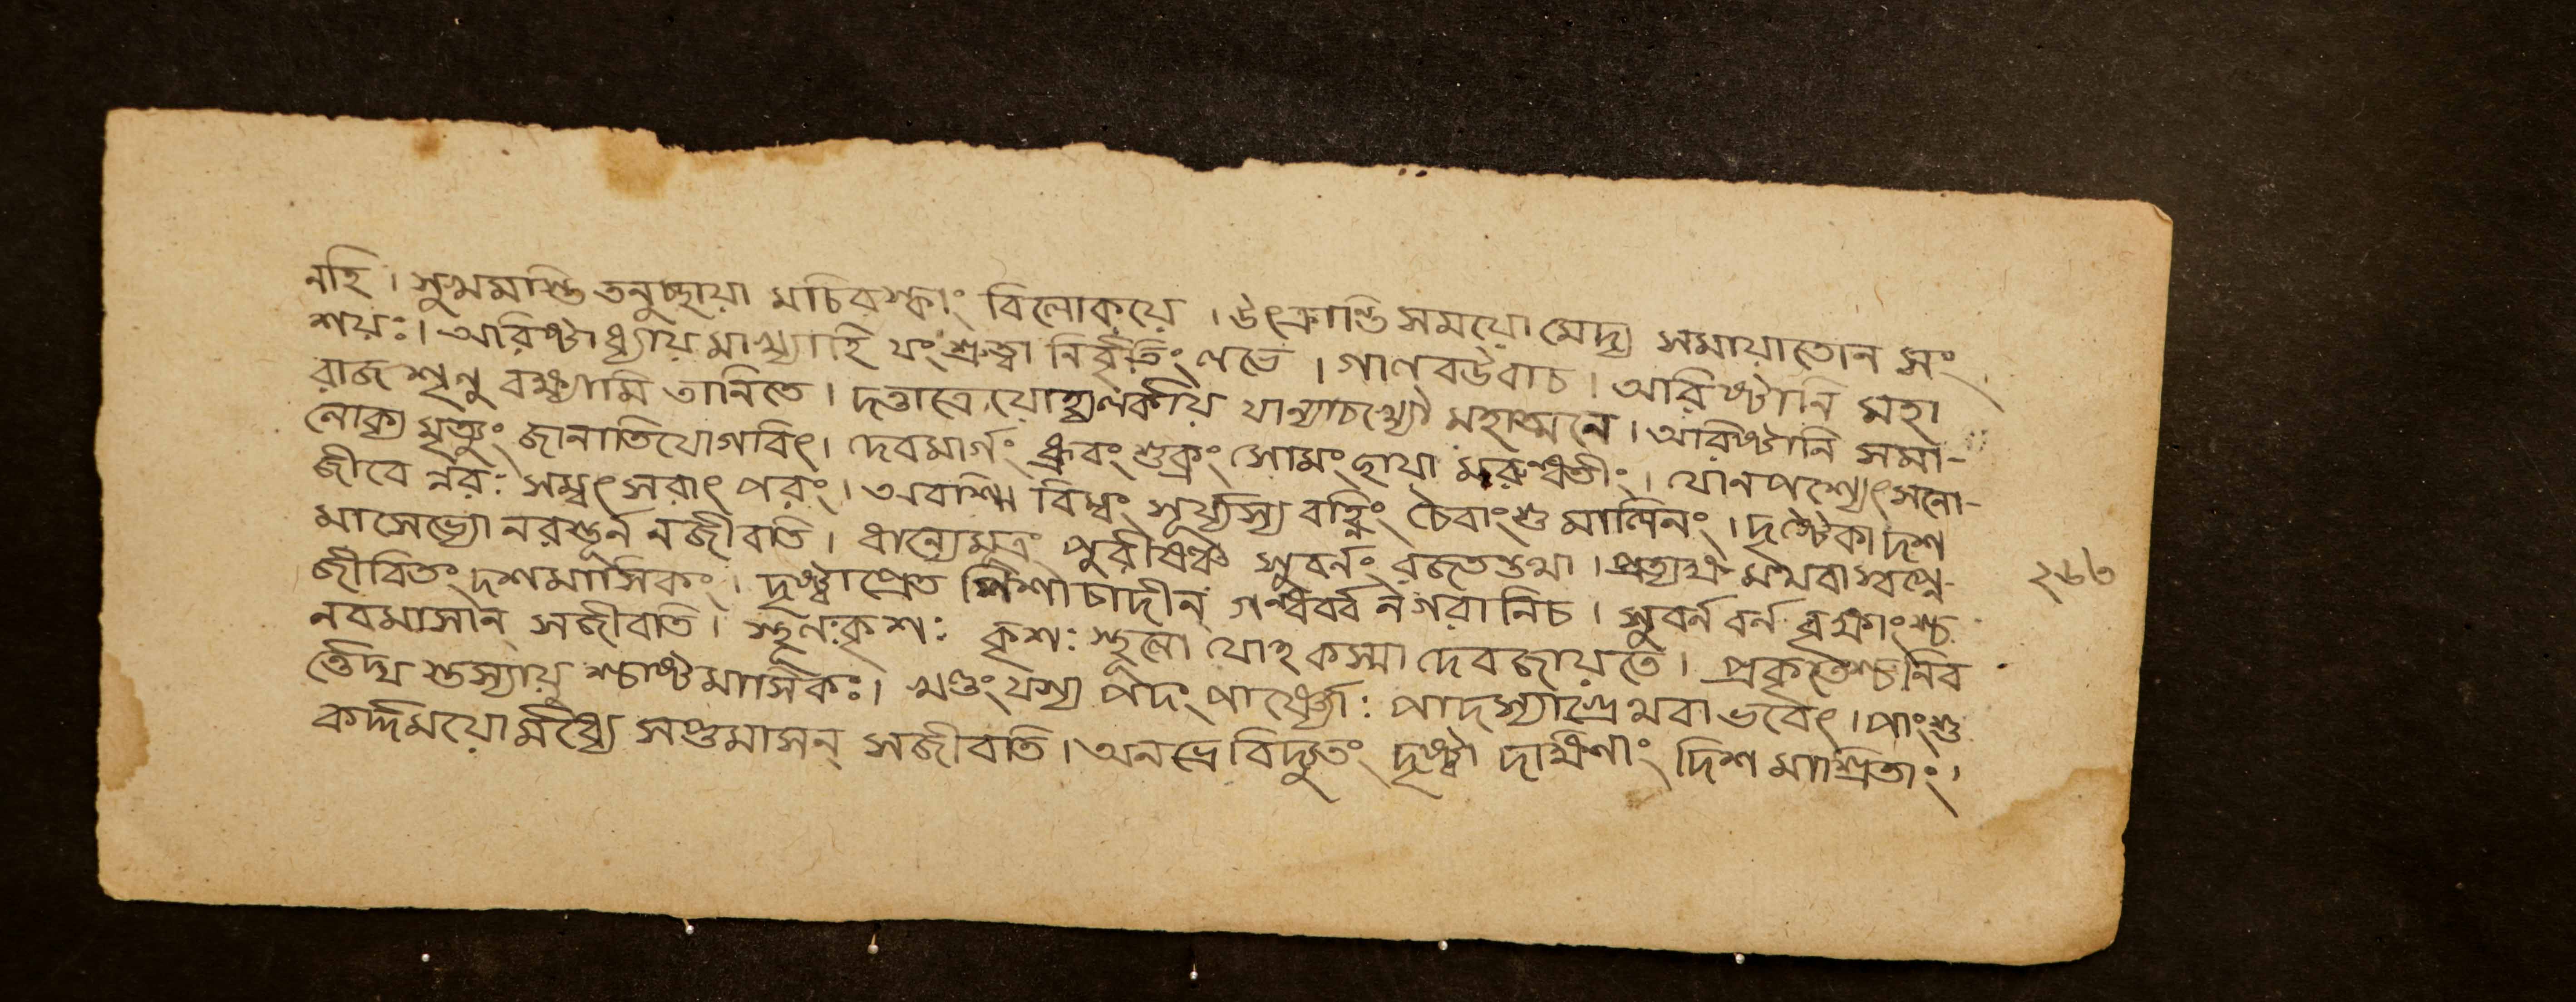 নহি। সুখমাস্তি তনুচ্ছায়া মচিরস্কাং বিলোকয়ে। উৎক্রান্তি সময়ো মেদ্য সমায়াতোন সং
শয়ঃ। অরিষ্টাধ্যায় মাখ্যাহি যংশ্রুত্বা নির্বৃতিং লভে। গালবউবাচ। অরিষ্টানি মহা
রাজ শৃনু বক্ষ্যামি তানিতে। দত্তাত্রেয়োহ্যলর্কায় যান্যাচখ্যৌ মহাত্মনে। অরিষ্টানি সমা-
লোক্য মৃত্যুং জানাতিযোগবিৎ। দেবমার্গং ধ্রুবং শুক্রং সোমংছায়া মরুন্ধতীং। যোনপশ্যেৎসনো-
জীবে র্ন্নরঃ সম্বৎসরাৎ পরং। অরশ্মি বিম্বং সূর্য্যস্য বহ্নিং চৈবাংশু মালিনং। দৃষ্টৈকাদশ
মাসেভ্যো নরস্তূর্ন নজীবতি। ধান্যেমূত্রং পুরীষঞ্চ সুবর্নং রজতন্তথা। প্রত্যক্ষ মথবাস্বপ্নে-
জীবিতং দশমাসিকং। দৃষ্ট্বাপ্রেত পিশাচাদীন্ গন্ধর্বর্ব নগরানিচ। সুবর্ন বর্ন বৃক্ষাংশ্চ
নবমাসান্ সজীবতি। স্থূলঃকৃশঃ কৃশঃ স্থূলো যোহকস্মা দেবজায়তে। প্রকৃতেশ্চনিব
র্ত্তেদ্য স্তস্যায়ু শ্চাষ্টমাসিকঃ। খণ্ডংযস্য পদংপার্ষ্ণ্যোঃ পাদস্যাগ্রেথবা ভবেৎ। পাংশু
কর্দ্দময়োর্মধ্যে সপ্তমাসন্ সজীবতি। অনভ্রেবিদ্যুতং দৃষ্ট্বা দক্ষিণাং দিশ মাশ্রিতাং।
২৮৩